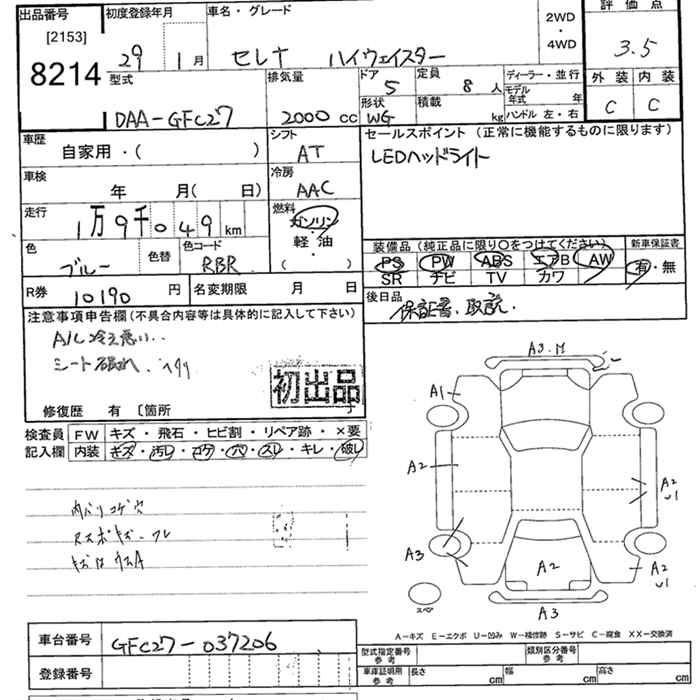 出品番号 初度登録年月 車名・グレード 2WD・4WD 評価点
[2153]
8214
29 1月 セレナ ハイウェイスター 3.5
型式 排気量 ドア 定員 ディーラー・並行 外装 内装
DAA-GFC27 2000 cc 5 8 人 モデル年式 年 C C
形状 積載
WG kg ハンドル 左・右
車歴 シフト セールスポイント(正常に機能するものに限ります)
自家用・( ) AT LEDヘッドライト
車検 冷房
年 月( 日) AAC
走行 燃料
1万9千049km ガソリン・軽油
( )
色 色替 色コード 装備品(純正品に限り○をつけてください) 新車保証書
ブルー RBR PS PW ABS エアB AW 有・無
SR ナビ TV カワ
R券 10190 円 名変期限 月 日 後日品
保証書、取説.
注意事項申告欄(不具合内容等は具体的に記入して下さい)
A/C冷え悪い..
シート破れ.
初出品
修復歴 有 〔箇所
検査員 FW キズ・飛石・ヒビ割・リペア跡・×要
記入欄 内装 キズ・汚レ・コゲ・穴・スレ・キレ・破レ
内ハリコゲ穴
A3.M
A1
A2
A2
U1
A3
A2
A2
U1
A3
スペア
A-キズ E-エクボ U-凹み W-補修跡 S-サビ C-腐食 XX-交換済
車台番号 GFC27-037206
型式指定番号 参考 類別区分番号 参考
登録番号 車庫証明用 参考 長さ cm 幅 cm 高さ cm